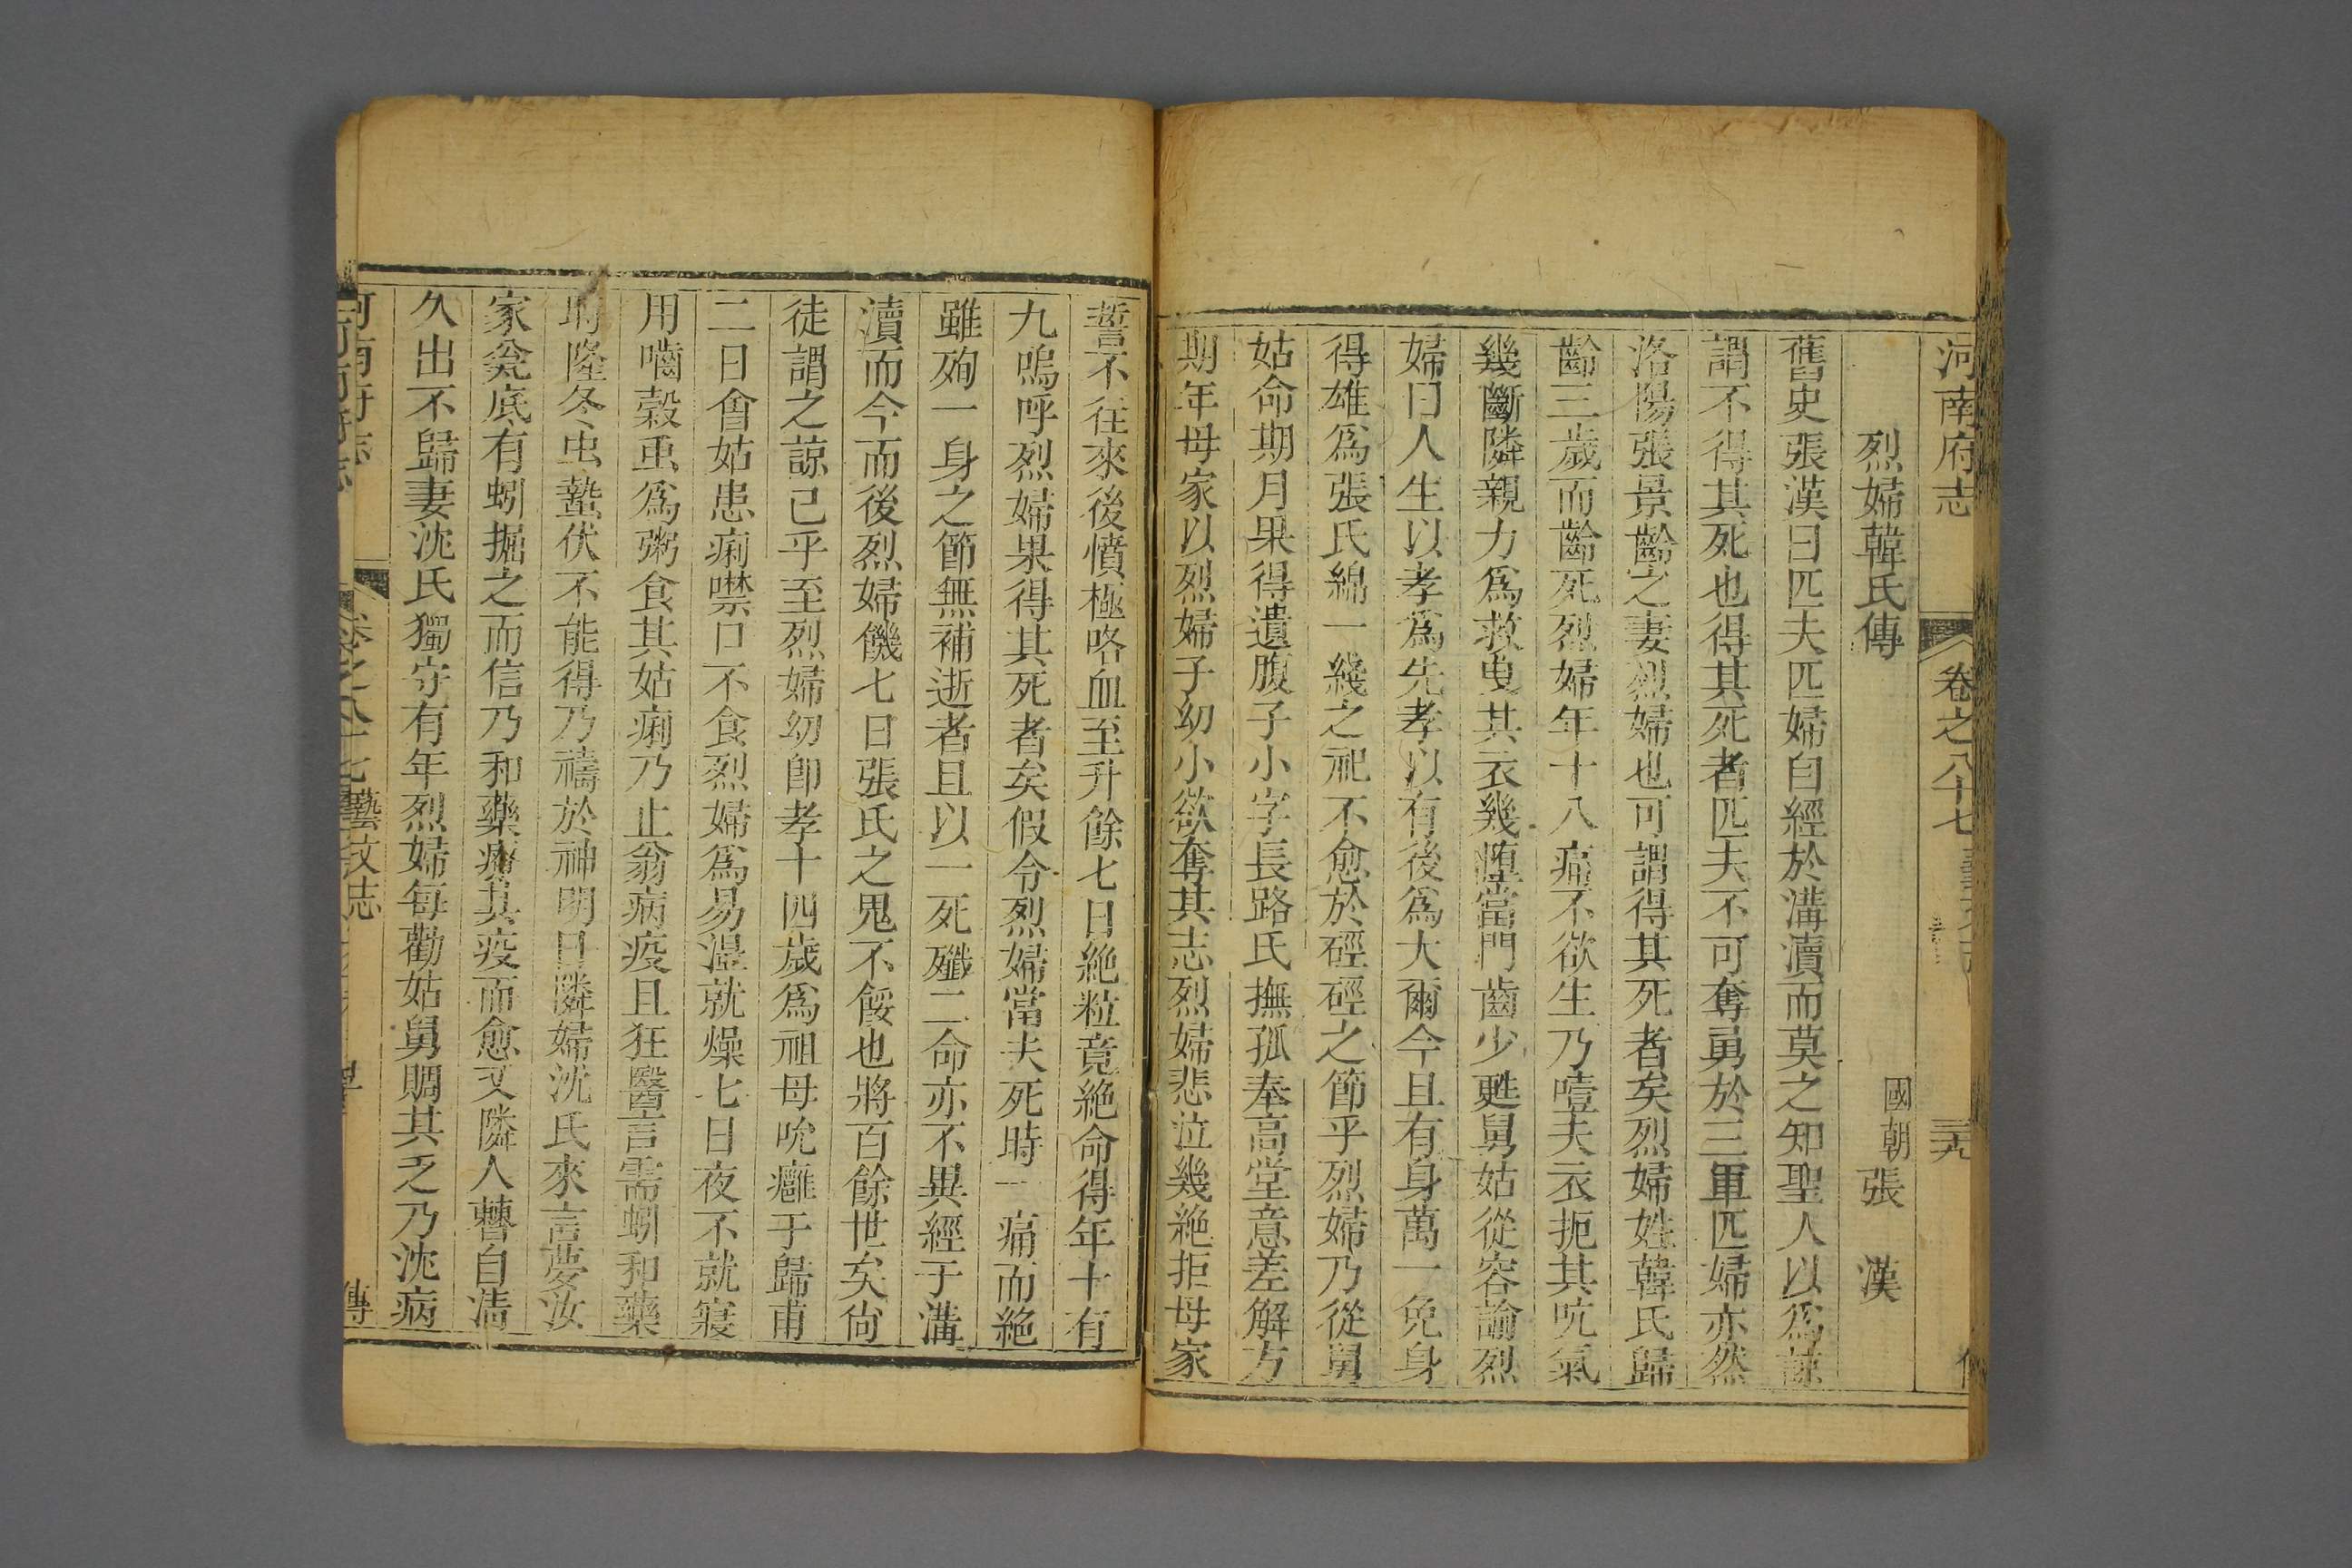 河南府志 卷之八十七 藝文志 三九
烈婦韓氏傳 國朝張 漢
舊史張漢曰匹夫匹婦自經於溝瀆而莫之知聖人以爲諒
謂不得其死也得其死者匹夫不可奪勇於三軍匹婦亦然
洛陽張景齡之妻烈婦也可謂得其死者矣烈婦姓韓氏歸
齡三歲而齡死烈婦年十八痛不欲生乃噎夫衣扼其吭氣
幾斷隣親力爲救曳其衣幾墮當門齒少甦舅姑從容諭烈
婦曰人生以孝爲先孝以有後爲大爾今且有身萬一免身
得雄爲張氏綿一綫之祀不愈於硜硜之節乎烈婦乃從舅
姑命期月果得遺腹子小字長路氏撫孤奉高堂意差解方
期年母家以烈婦子幼小欲奪其志烈婦悲泣幾絶拒母家
誓不往來後憤極咯血至升餘七日絶粒竟絶命得年十有
九嗚呼烈婦果得其死者矣假令烈婦當夫死時一痛而絶
雖殉一身之節無補逝者且以一死殲二命亦不異經于溝
瀆而今而後烈婦饑七日張氏之鬼不餒也將百餘世矣尙
徒謂之諒已乎至烈婦幼卽孝十四歲爲祖母吮癰于歸甫
二日會姑患痢噤口不食烈婦爲易濕就燥七日夜不就寢
用嚙穀䖝爲粥食其姑痢乃止翁病疫且狂醫言需蚓和藥
時隆冬虫蟄伏不能得乃禱於神明日隣婦沈氏來言夢汝
家瓮底有蚓掘之而信乃和藥療其疫而愈又隣人瞽自淸
久出不歸妻沈氏獨守有年烈婦每勸姑舅賙其乏乃沈病
河南府志 藝文志 傳